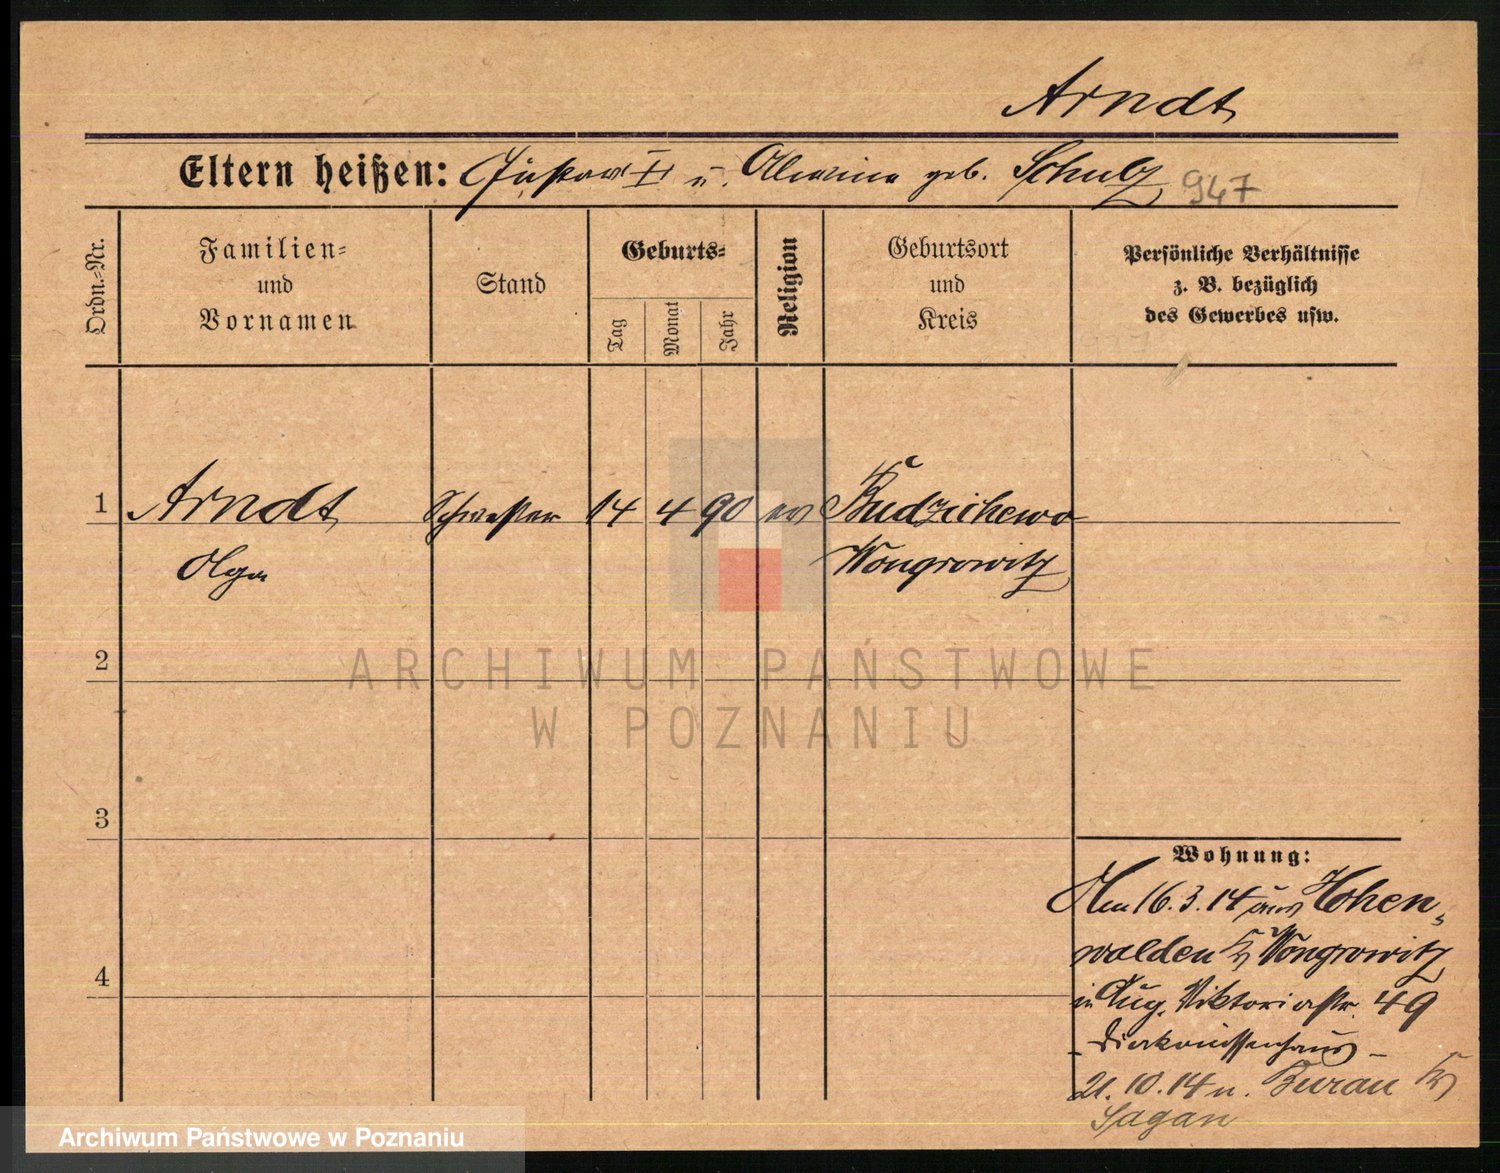 Arndt
Eltern heißen: Gustav u. Alwine geb. Schulz 947
Ordn.=Nr.
Familien=
und
Vornamen
Stand
Geburts=
Tag
Monat
Jahr
Religion
Geburtsort
und
Kreis
Persönliche Verhältnisse
z. B. bezüglich
des Gewerbes usw.
1 Arndt Schwester 14 4 90 ev Budzichewo
Olga Wongrowitz
2
ARCHIWUM PAŃSTWOWE
W POZNANIU
3
Wohnung:
16.3.14 aus Hohen„
walden Kr Wongrowitz
in Aug. Viktoriastr. 49
4
- Diakonissenhaus -
21.10.14 n. Burau Kr
Sagan
Archiwum Państwowe w Poznaniu